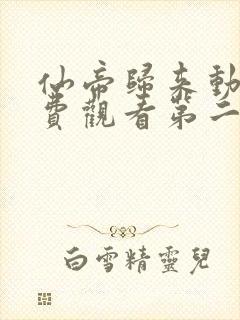 仙帝歸來動
費觀看第二
白雪精靈兒